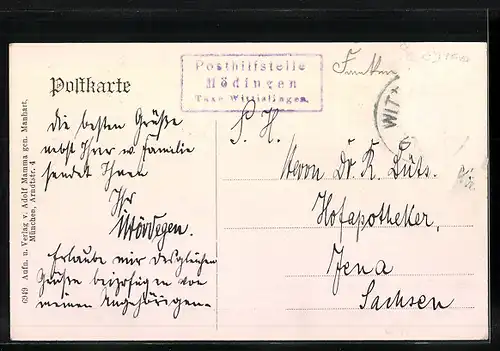 Postkarte
Posthilfstelle
Mödingen
Taxe Wittislingen.
WIT
Die besten Grüße
nebst Ihrer w. Familie
sendet Ihnen
Ihr
Erlaube mir desgleichen
Grüße beizufügen von
meinen Angehörigen.
S. H.
Herrn Dr. R. Lüts.
Hofapotheker,
Jena
Sachsen
6949 Aufn. u. Verlag v. Adolf Mamma gen. Manhart,
München, Arndtstr. 4